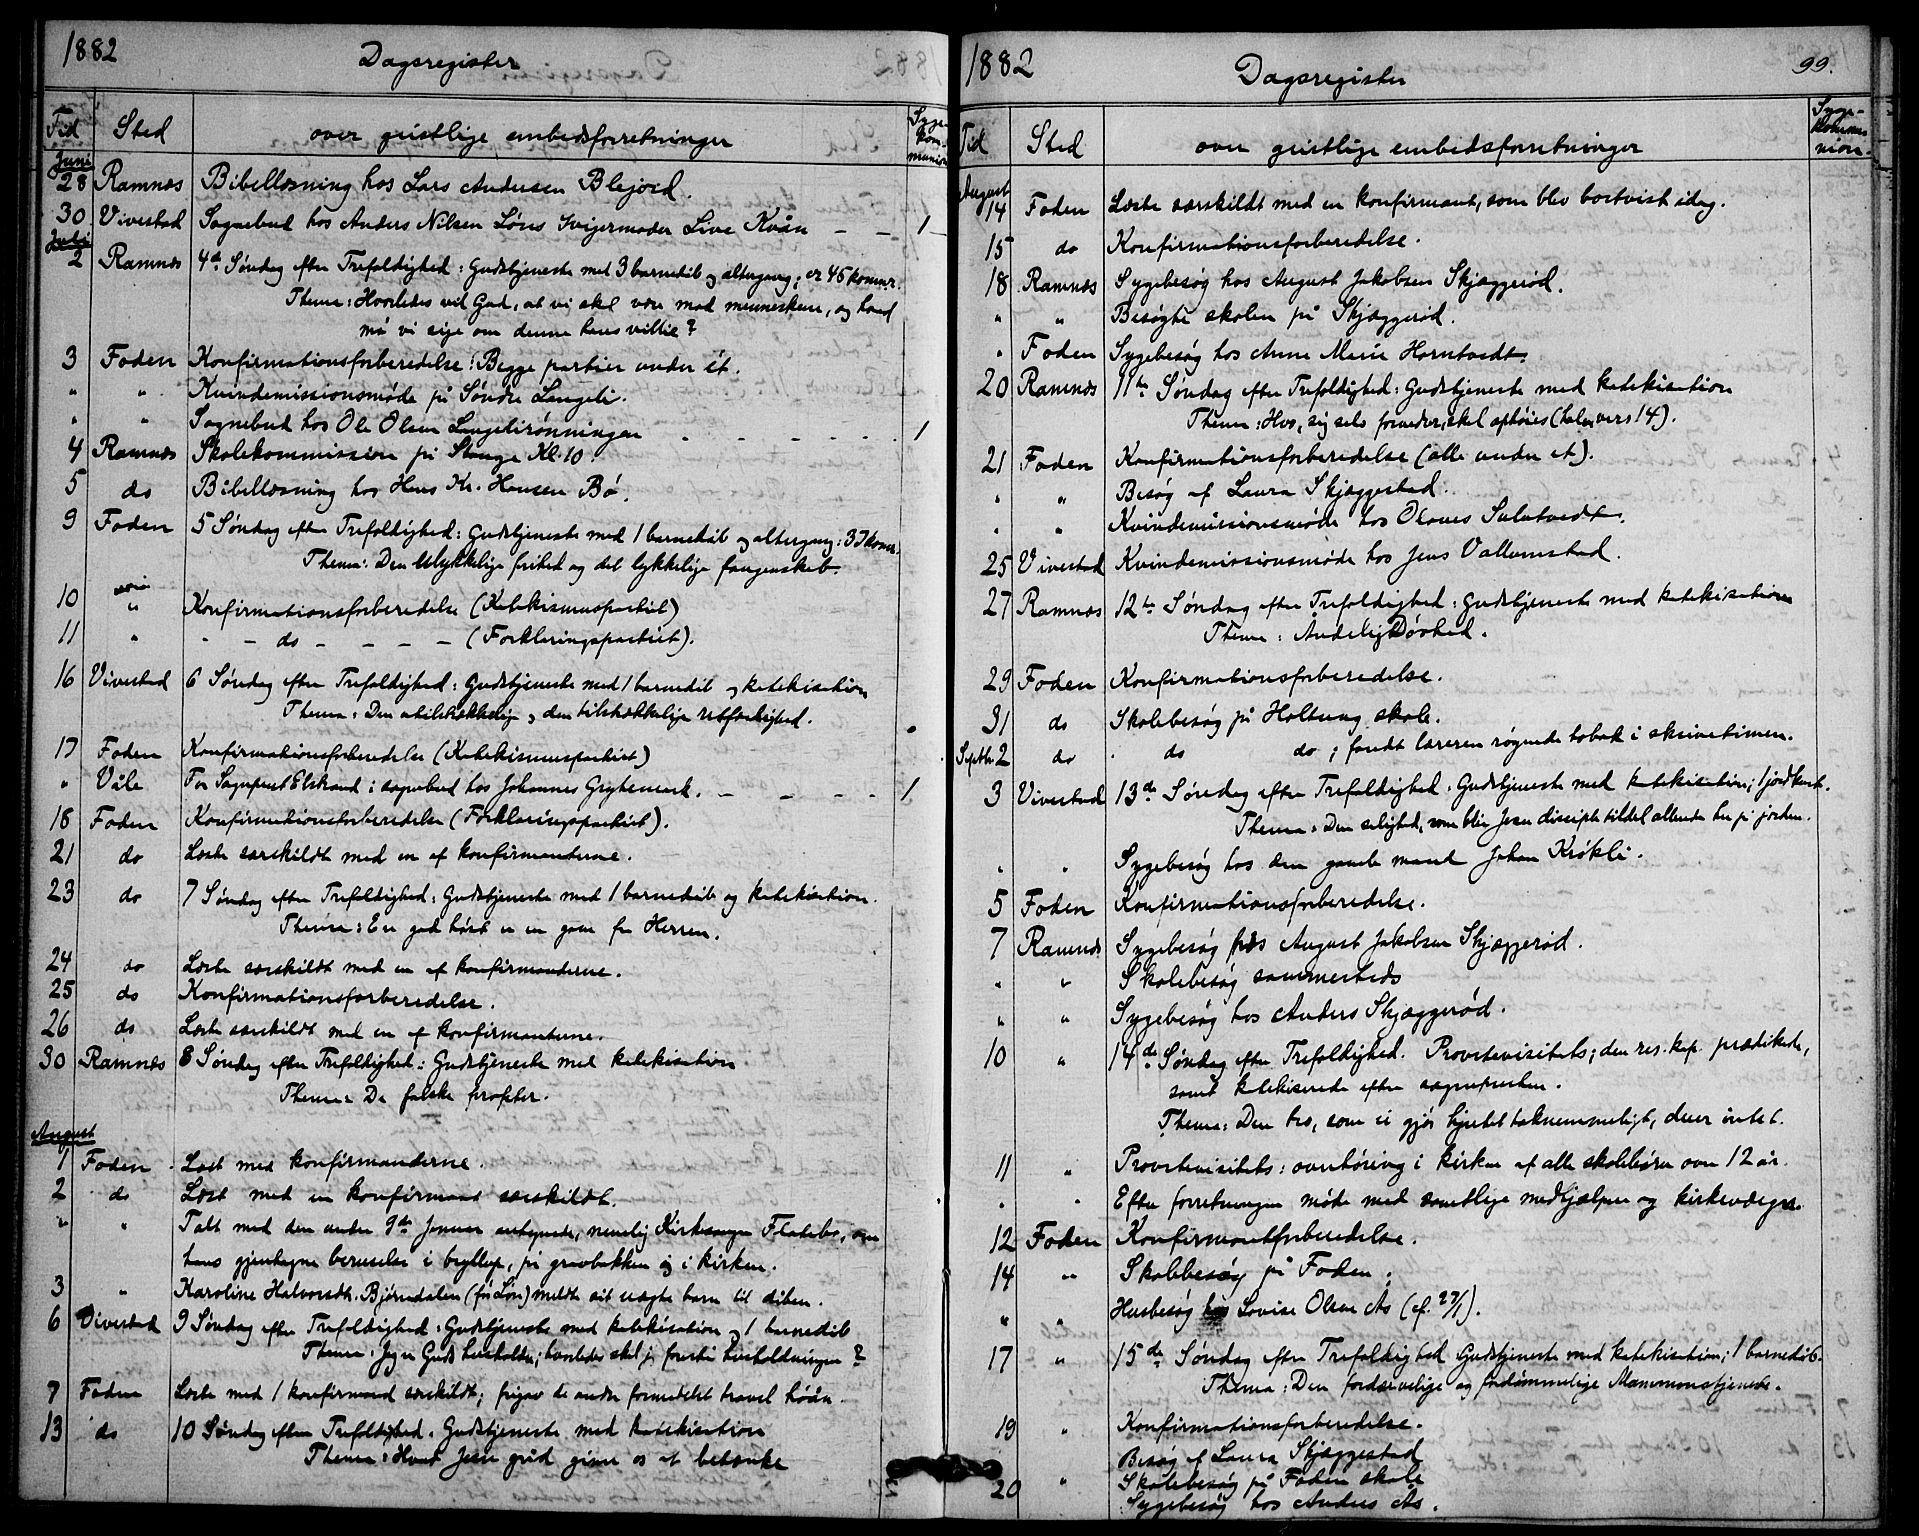 1882
Dagsregister
Tid Sted over geistlige embedsforretninger Syge-kom-munion
Juni
28 Ramnæs Bibellæsning hos Lars Andersen Blejord.
30 Vivestad Sognebud hos Anders Nilsen Löns Svigermoder Live Kvån — — 1
Juli
2 Ramnæs 4de Søndag efter Trefoldighed: Gudstjeneste med 3 barnedåb og altergang; er 45 kommr.
Thema: Hvorledes vil Gud, at vi skal være mod menneskene, og hvad
må vi sige om denne hans villie?
3 Foden Konfirmationsforberedelse: Begge partier under ét.
" " Kvindemissionsmøde på Søndre Langeli.
" " Sognebud hos Ole Olsen Langelirønningen - - - - - 1
4 Ramnæs Skolekommission på Stange Kl. 10
5 do Bibellæsning hos Hans Kr. Hansen Bö.
9 Foden 5 Søndag efter Trefoldighed: Gudstjeneste med 1 barnedåb og altergang: 37 komr.
Thema: Den ulykkelige frihed og det lykkelige fangenskab.
10 " Konfirmationsforberedelse (Katekismuspartiet)
11 " - - do - - - - (Forklaringspartiet).
16 Vivestad 6 Søndag efter Trefoldighed: Gudstjeneste med 1 barnedåb og katekisation
Thema: Den utilstrækkelige og den tilstrækkelige retfærdighed.
17 Foden Konfirmationsforberedelse (Katekismuspartiet)
" Våle For Sogneprest Elstrand i sognebud hos Johannes Grytemark. — — — — 1
18 Foden Konfirmationsforberedelse (Forklaringspartiet).
21 do Læste særskildt med en af konfirmanterne.
23 do 7 Søndag efter Trefoldighed: Gudstjeneste med 1 barnedåb og katekisation.
Thema: En god høst er en gave fra Herren.
24 do Læste særskildt med en af konfirmanderne.
25 do Konfirmationsforberedelse.
26 do Læste særskildt med en af konfirmanterne.
30 Ramnæs 8 Søndag efter Trefoldighed: Gudstjeneste med katekisation
Thema: De falske profeter.
August
1 Foden Læst med konfirmanderne.
2 do Læst med en konfirmant særskildt.
" " Talt med den under 9de Januar antegnede, nemlig Kirkesanger Flatebø, om
hans gjentagne beruselse i bryllup, på gravbakken og i kirken.
3 " Karoline Halvorsdtr. Bjørndalen (før Lön) meldte sit uægte barn til dåben.
6 Vivestad 9 Søndag efter Trefoldighed: Gudstjeneste med katekisation og 1 barnedåb
Thema: Jeg er Guds husholder; hvorledes skal jeg forestå husholdningen?
7 Foden Læste med 1 konfirmand særskildt; frigav de andre formedelst travel høån.
13 do 10 Søndag efter Trefoldighed. Gudstjeneste med katekisation
Thema: Hvad Jesu gråd giver os at betænke
1882
Dagsregister
99.
Tid Sted over geistlige embedsforretninger Syge-kommu-nion.
August
14 Foden Læste særskildt med en konfirmant, som blev bortvist idag.
15 do Konfirmationsforberedelse.
18 Ramnæs Sygebesøg hos August Jakobsen Skjæggerød.
" " Besøgte skolen på Skjæggerød.
" Foden Sygebesøg hos Anne Marie Horntvedt.
20 Ramnæs 11te Søndag efter Trefoldighed: Gudstjeneste med katekisation
Thema: Hvo, sig selv fornedrer, skal ophøies (halve vers 14).
21 Foden Konfirmationsforberedelse (alle under et).
" " Besøg af Laura Skjæggestad.
" " Kvindemissionsmøde hos Olaves Sulutvedt.
25 Vivestad Kvindemissionsmøde hos Jens Vallumstad.
27 Ramnæs 12te Søndag efter Trefoldighed: Gudstjeneste med katekisation
Thema: Åndelig Døvhed.
29 Foden Konfirmationsforberedelse.
31 do Skolebesøg på Holtung skole.
Septbr. 2 do do do; fandt læreren røgende tobak i skrivetimen.
3 Vivestad 13de Søndag efter Trefoldighed. Gudstjeneste med katekisation; 1 jordkast.
Thema: Den salighed, som blir Jesu disciple tildel allerede her på jorden.
" " Sygebesøg hos den gamle mand Johan Krøkli.
5 Foden Konfirmationsforberedelse.
7 Ramnæs Sygebesøg hos August Jakobsen Skjæggerød.
" " Skolebesøg sammesteds
" " Sygebesøg hos Anders Skjæggerød.
10 " 14de Søndag efter Trefoldighed. Provstevisitats; den res. kap. prædikede,
samt katekiserede efter sognepresten.
Thema: Den tro, som ei gjør hjertet taknemmeligt, duer intet.
11 " Provstevisitats: overhøring i kirken af alle skolebørn over 12 år.
" " Efter forretningen møde med samtlige medhjælpere og kirkeværger.
12 Foden Konfirmantforberedelse.
14 " Skolebesøg på Foden.
" " Husbesøg hos Lovise Olsen Ås (cf. 27/1).
17 " 15de Søndag efter Trefoldighed Gudstjeneste med katekisation; 1 barnedåb.
Thema: Den fordærvelige og fordømmelige Mammonstjeneste.
19 " Konfirmationsforberedelse.
Besøg af Laura Skjæggestad
20 " Skolebesøg på Foden skole
Sygebesøg hos Anders Ås.